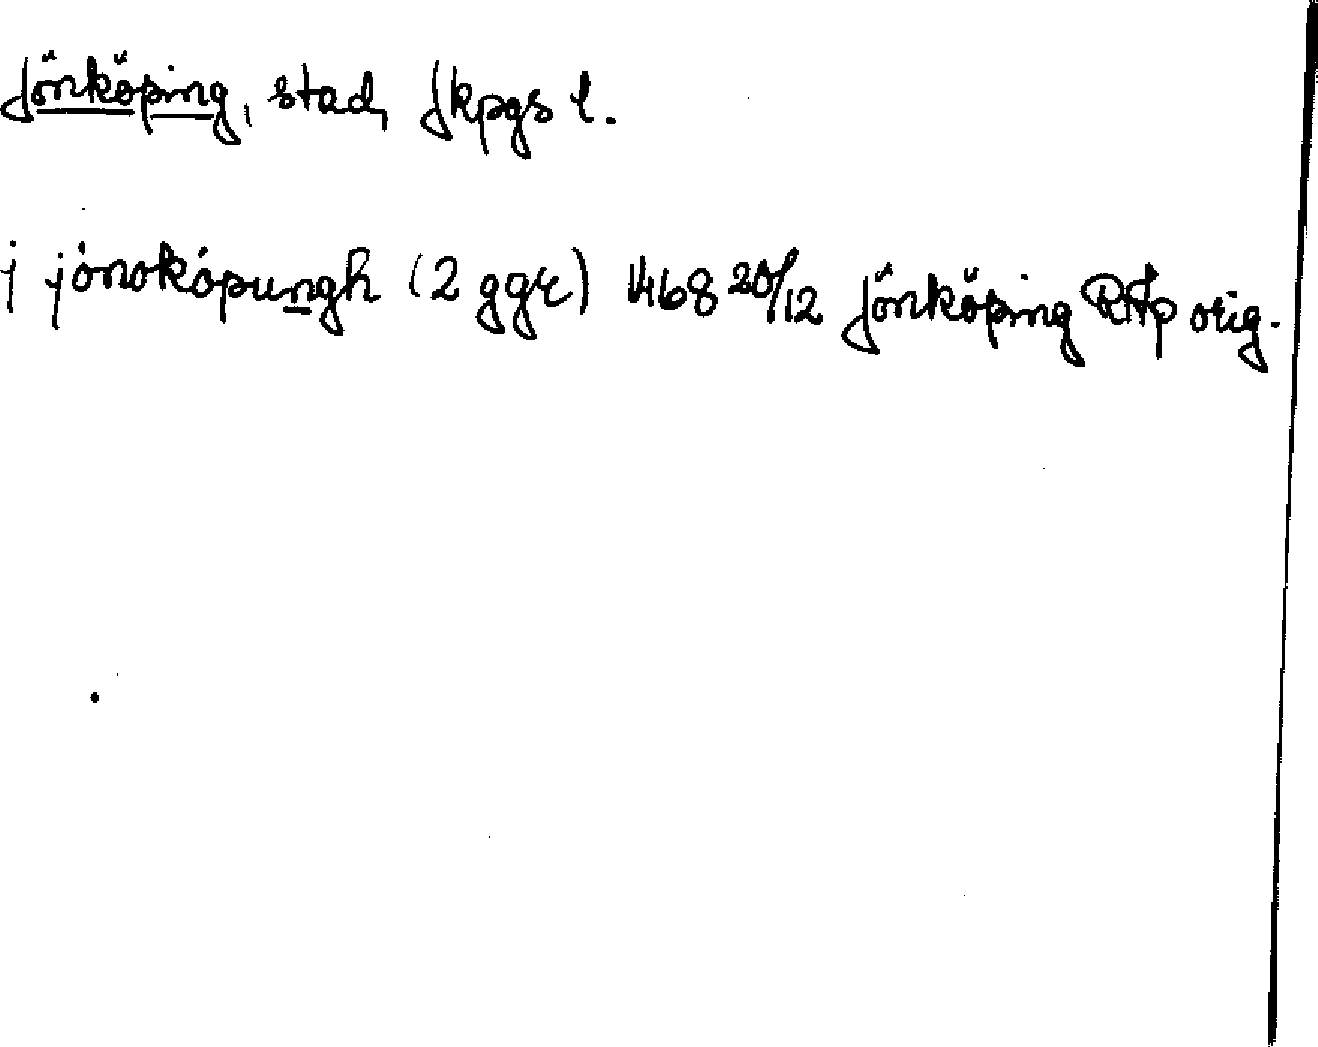 Jönköping, stad, Jkpgs l.
j jónokópungh (2 ggr) 1468 20/12 Jönköping RAp orig.